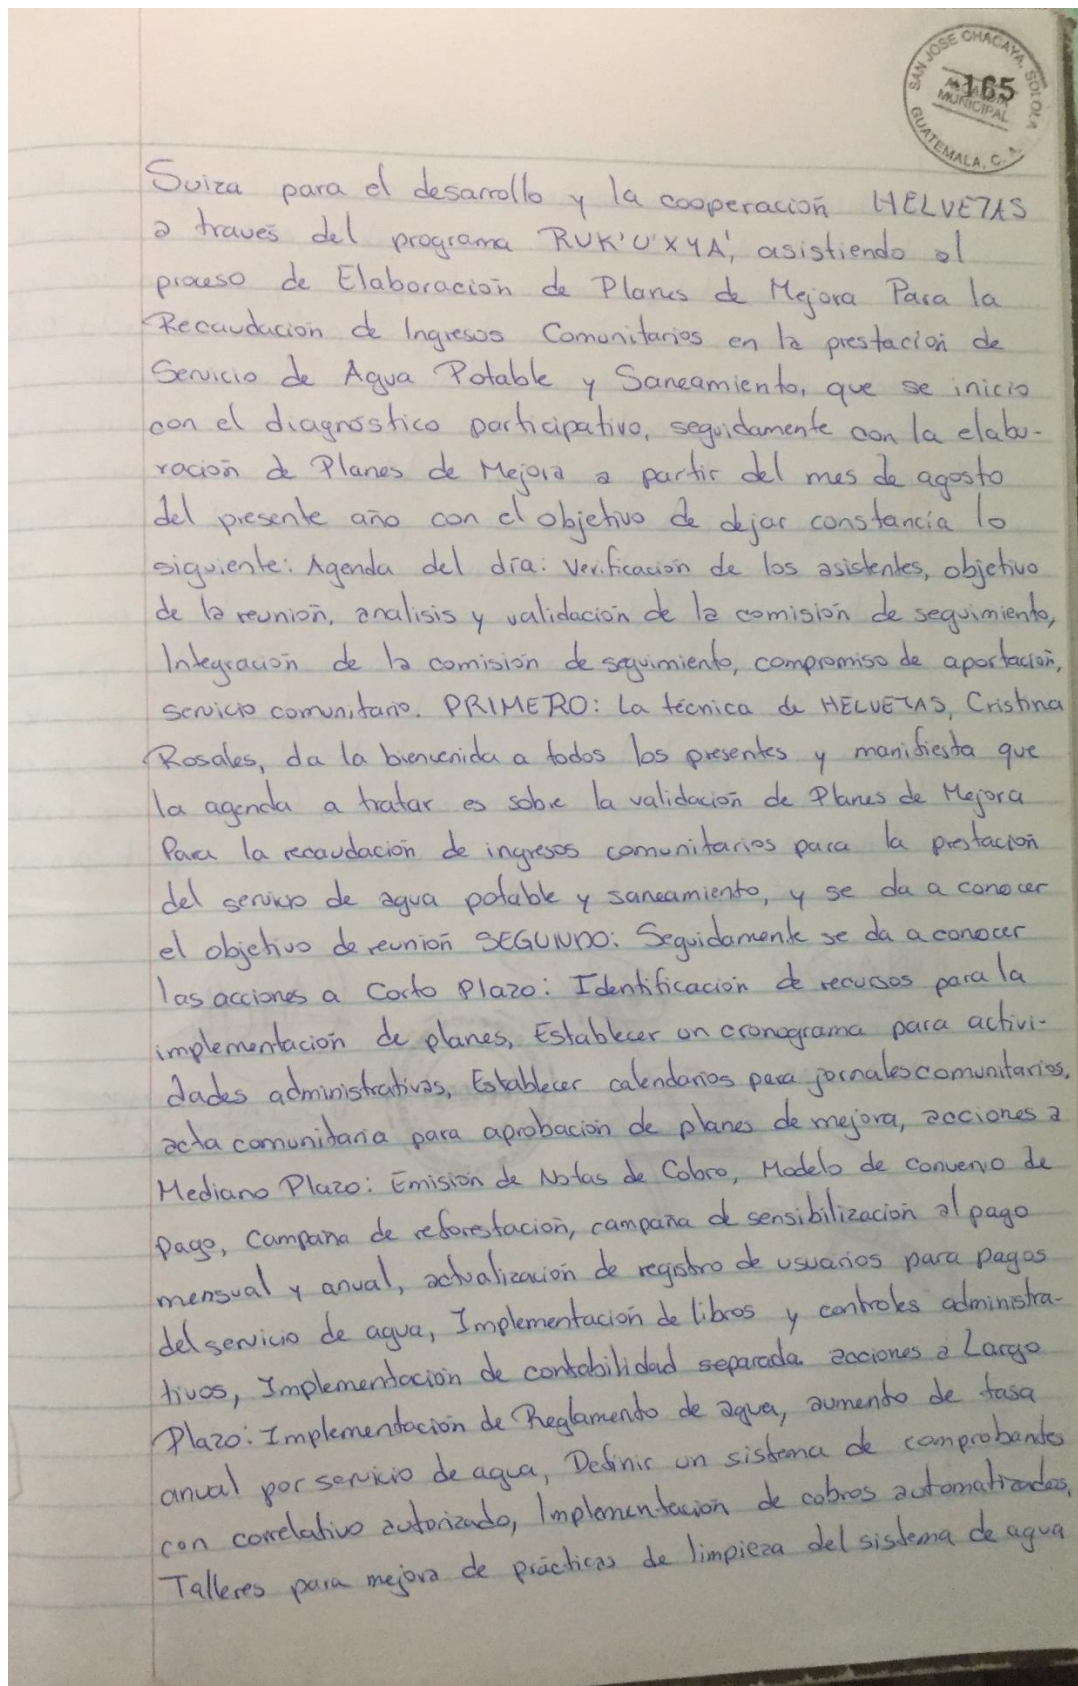 SAN JOSE CHACAYA, SOLOLA
165
ALCALDIA
MUNICIPAL
GUATEMALA, C. A.
Suiza para el desarrollo y la cooperación HELVETAS
a través del programa RUK'U'X YA', asistiendo al
proceso de Elaboración de Planes de Mejora Para la
Recaudación de Ingresos Comunitarios en la prestación de
Servicio de Agua Potable y Saneamiento, que se inicio
con el diagnóstico participativo, seguidamente con la elabo-
ración de Planes de Mejora a partir del mes de agosto
del presente año con el objetivo de dejar constancia lo
siguiente: Agenda del día: Verificación de los asistentes, objetivo
de la reunión, analisis y validación de la comisión de seguimiento,
Integración de la comisión de seguimiento, compromiso de aportación,
servicio comunitario. PRIMERO: La técnica de HELVETAS, Cristina
Rosales, da la bienvenida a todos los presentes y manifiesta que
la agenda a tratar es sobre la validación de Planes de Mejora
Para la recaudación de ingresos comunitarios para la prestación
del servicio de agua potable y saneamiento, y se da a conocer
el objetivo de reunión SEGUNDO: Seguidamente se da a conocer
las acciones a Corto Plazo: Identificación de recursos para la
implementación de planes, Establecer un cronograma para activi-
dades administrativas, Establecer calendarios para jornales comunitarios,
acta comunitaria para aprobación de planes de mejora, acciones a
Mediano Plazo: Emisión de Notas de Cobro, Modelo de convenio de
Pago, Campaña de reforestación, campaña de sensibilización al pago
mensual y anual, actualización de registro de usuarios para pagos
del servicio de agua, Implementación de libros y controles administra-
tivos, Implementación de contabilidad separada. acciones a Largo
Plazo: Implementación de Reglamento de agua, aumento de tasa
anual por servicio de agua, Definir un sistema de comprobantes
con correlativo autorizado, Implementación de cobros automatizados,
Talleres para mejora de prácticas de limpieza del sistema de agua